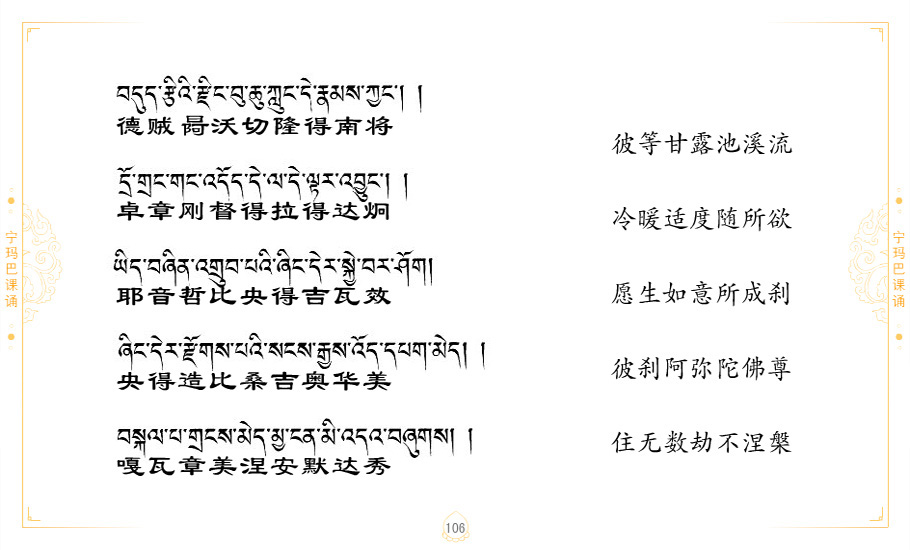 བདུད་རྩིའི་རྫིང་བུ་ཆུ་ཀླུང་དེ་རྣམས་ཀྱང་། །
德贼 剐沃切隆得南将
彼等甘露池溪流
དྲོ་གྲང་གང་འདོད་དེ་ལ་དེ་ལྟར་འབྱུང་། །
卓章刚督得拉得达炯
冷暖适度随所欲
ཡིད་བཞིན་འགྲུབ་པའི་ཞིང་དེར་སྐྱེ་བར་ཤོག།
耶音哲比央得吉瓦效
愿生如意所成刹
ཞིང་དེར་རྫོགས་པའི་སངས་རྒྱས་འོད་དཔག་མེད། །
央得造比桑吉奥华美
彼刹阿弥陀佛尊
བསྐལ་པ་གྲངས་མེད་མྱ་ངན་མི་འདའ་བཞུགས། །
嘎瓦章美涅安默达秀
住无数劫不涅槃
宁玛巴课诵
宁玛巴课诵
106